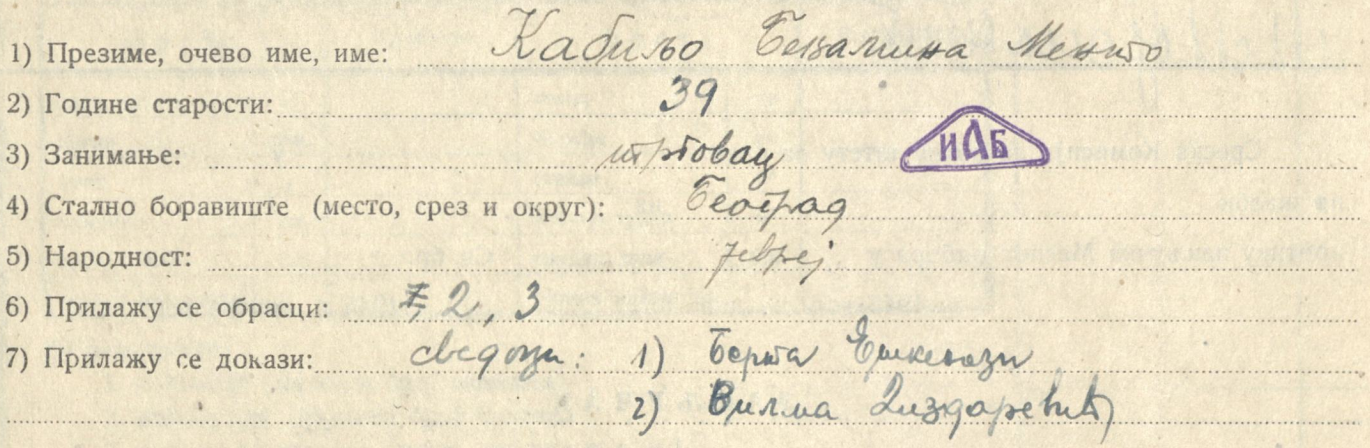 1) Презиме, очево име, име: Кабиљо Бенцамина Менто
2) Године старости: 39
3) Занимање: трговац
ИАБ
4) Стално боравиште (место, срез и округ): Београд
5) Народност: јеврј
6) Прилажу се обрасци: 2, 3
7) Прилажу се докази: сведоци: 1) Берта Ешкенази
2) Вилма Диздаревић